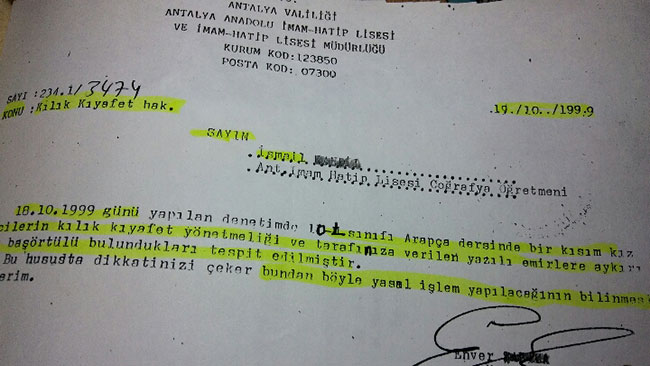 ANTALYA VALİLİĞİ
ANTALYA ANADOLU İMAM-HATİP LİSESİ
VE İMAM-HATİP LİSESİ MÜDÜRLÜĞÜ
KURUM KOD:123850
POSTA KOD: 07300
SAYI :234.1/3474
KONU :Kılık Kıyafet hak.
.19./10../199.9
SAYIN
İsmail
Ant.İmam Hatip Lisesi Coğrafya Öğretmeni
18.10.1999 günü yapılan denetimde sınıfı Arapça dersinde bir kısım kız
cilerin kılık kıyafet yönetmeliği ve tarafınıza verilen yazılı emirlere aykırı
başörtülü bulundukları tespit edilmiştir.
Bu hususta dikkatinizi çeker bundan böyle yasal işlem yapılacağının bilinmes
erim.
Enver